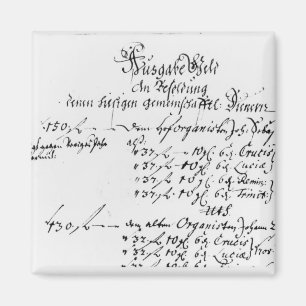 Ausgabe Geld
An Besoldung
denen hiesigen gemeinschafftl: Dienern
150 fl — dem Hoforganisten Joh. Seba
als:
37 fl 10 gl 6 d Crucis
37 fl 10 gl 6 d Luciæ
37 fl 10 gl 6 d Remin:
37 fl 10 gl 6 d Trinit:
uts
130 fl — dem alten Organisten Johann
37 fl 10 gl 6 d Crucis
37 fl 10 gl 6 d Luciæ